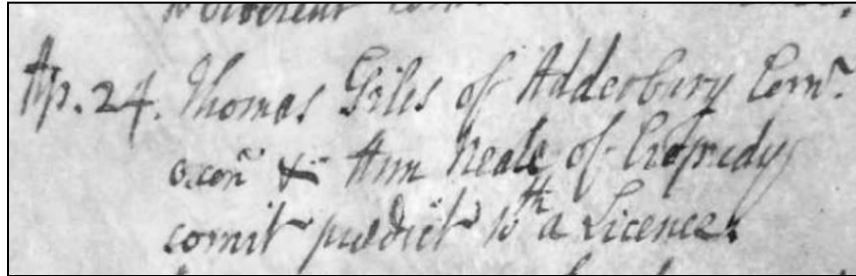 Ap. 24. Thomas Giles of Adderbury Com.
oxon & Ann Neale of Cropredy
comit prædict wth a Licence.